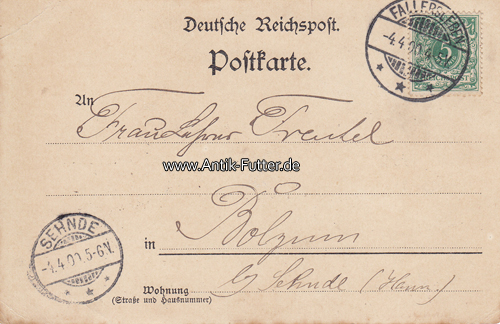 Deutsche Reichspost.
FALLERSLEBEN
-4.4.00.
5
Postkarte.
An
Frau Lehrer Treutel
www.Antik-Futter.de
SEHNDE
-4.4.00.5-6N.
in Bolzum
b/ Sehnde (Hann.)
Wohnung
(Straße und Hausnummer)